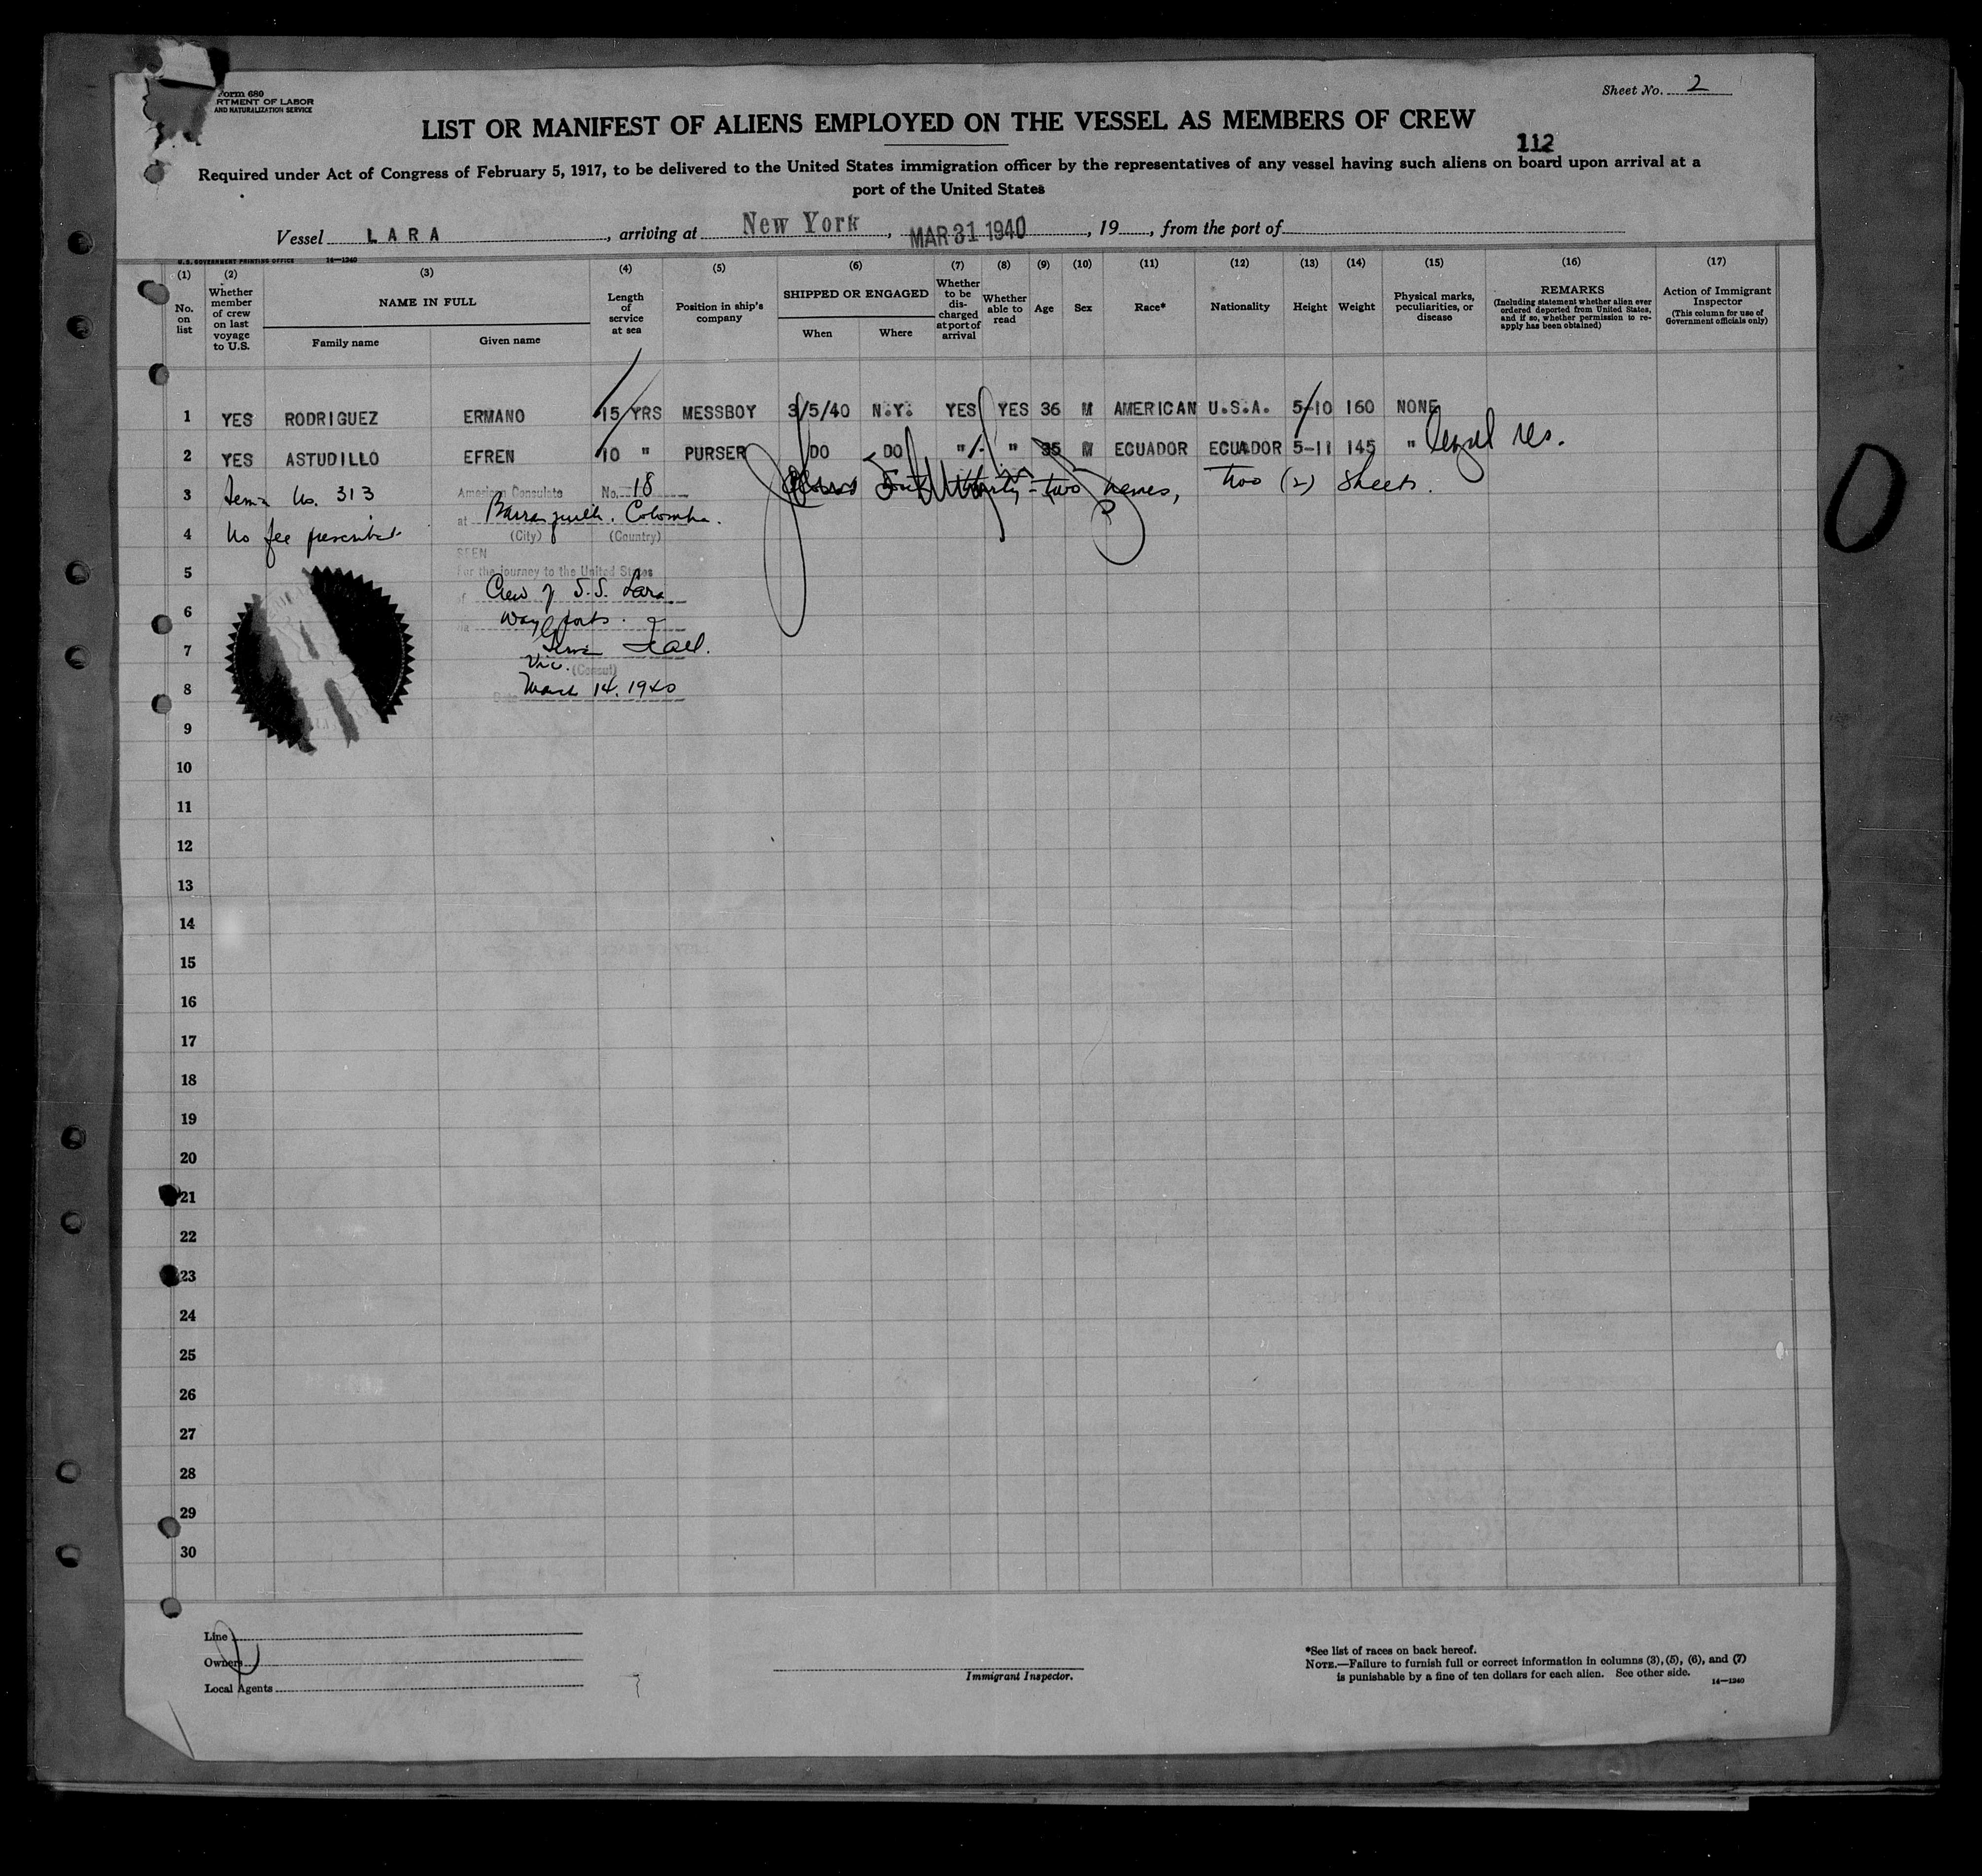 Form 680
RTMENT OF LABOR
AND NATURALIZATION SERVICE
Sheet No. 2
LIST OR MANIFEST OF ALIENS EMPLOYED ON THE VESSEL AS MEMBERS OF CREW
112
Required under Act of Congress of February 5, 1917, to be delivered to the United States immigration officer by the representatives of any vessel having such aliens on board upon arrival at a
port of the United States
Vessel LARA, arriving at New York, MAR 31 1940, 19, from the port of
U.S. GOVERNMENT PRINTING OFFICE 14—1240
(1) (2) (3) (4) (5) (6) (7) (8) (9) (10) (11) (12) (13) (14) (15) (16) (17)
No. on list
Whether member of crew on last voyage to U.S.
NAME IN FULL
Family name
Given name
Length of service at sea
Position in ship's company
SHIPPED OR ENGAGED
When
Where
Whether to be discharged at port of arrival
Whether able to read
Age
Sex
Race*
Nationality
Height
Weight
Physical marks, peculiarities, or disease
REMARKS
(Including statement whether alien ever ordered deported from United States, and if so, whether permission to reapply has been obtained)
Action of Immigrant Inspector
(This column for use of Government officials only)
1 YES RODRIGUEZ ERMANO 15 YRS MESSBOY 3/5/40 N.Y. YES YES 36 M AMERICAN U.S.A. 5-10 160 NONE
2 YES ASTUDILLO EFREN 10 " PURSER DO DO " " 35 M ECUADOR ECUADOR 5-11 145 " legal res.
3 No. 313 American Consulate No. 18 two names, Two (2) Sheets.
at Barranquilla, Colombia.
4 No fee prescribed (City) (Country)
SEEN
5 For the journey to the United States
of Crew of S.S. Lara
6 Via way ports.
7
Vice (Consul)
8 Date March 14, 1940
9
10
11
12
13
14
15
16
17
18
19
20
21
22
23
24
25
26
27
28
29
30
Line
Owners
Local Agents
Immigrant Inspector.
*See list of races on back hereof.
NOTE.—Failure to furnish full or correct information in columns (3), (5), (6), and (7)
is punishable by a fine of ten dollars for each alien. See other side.
14—1240